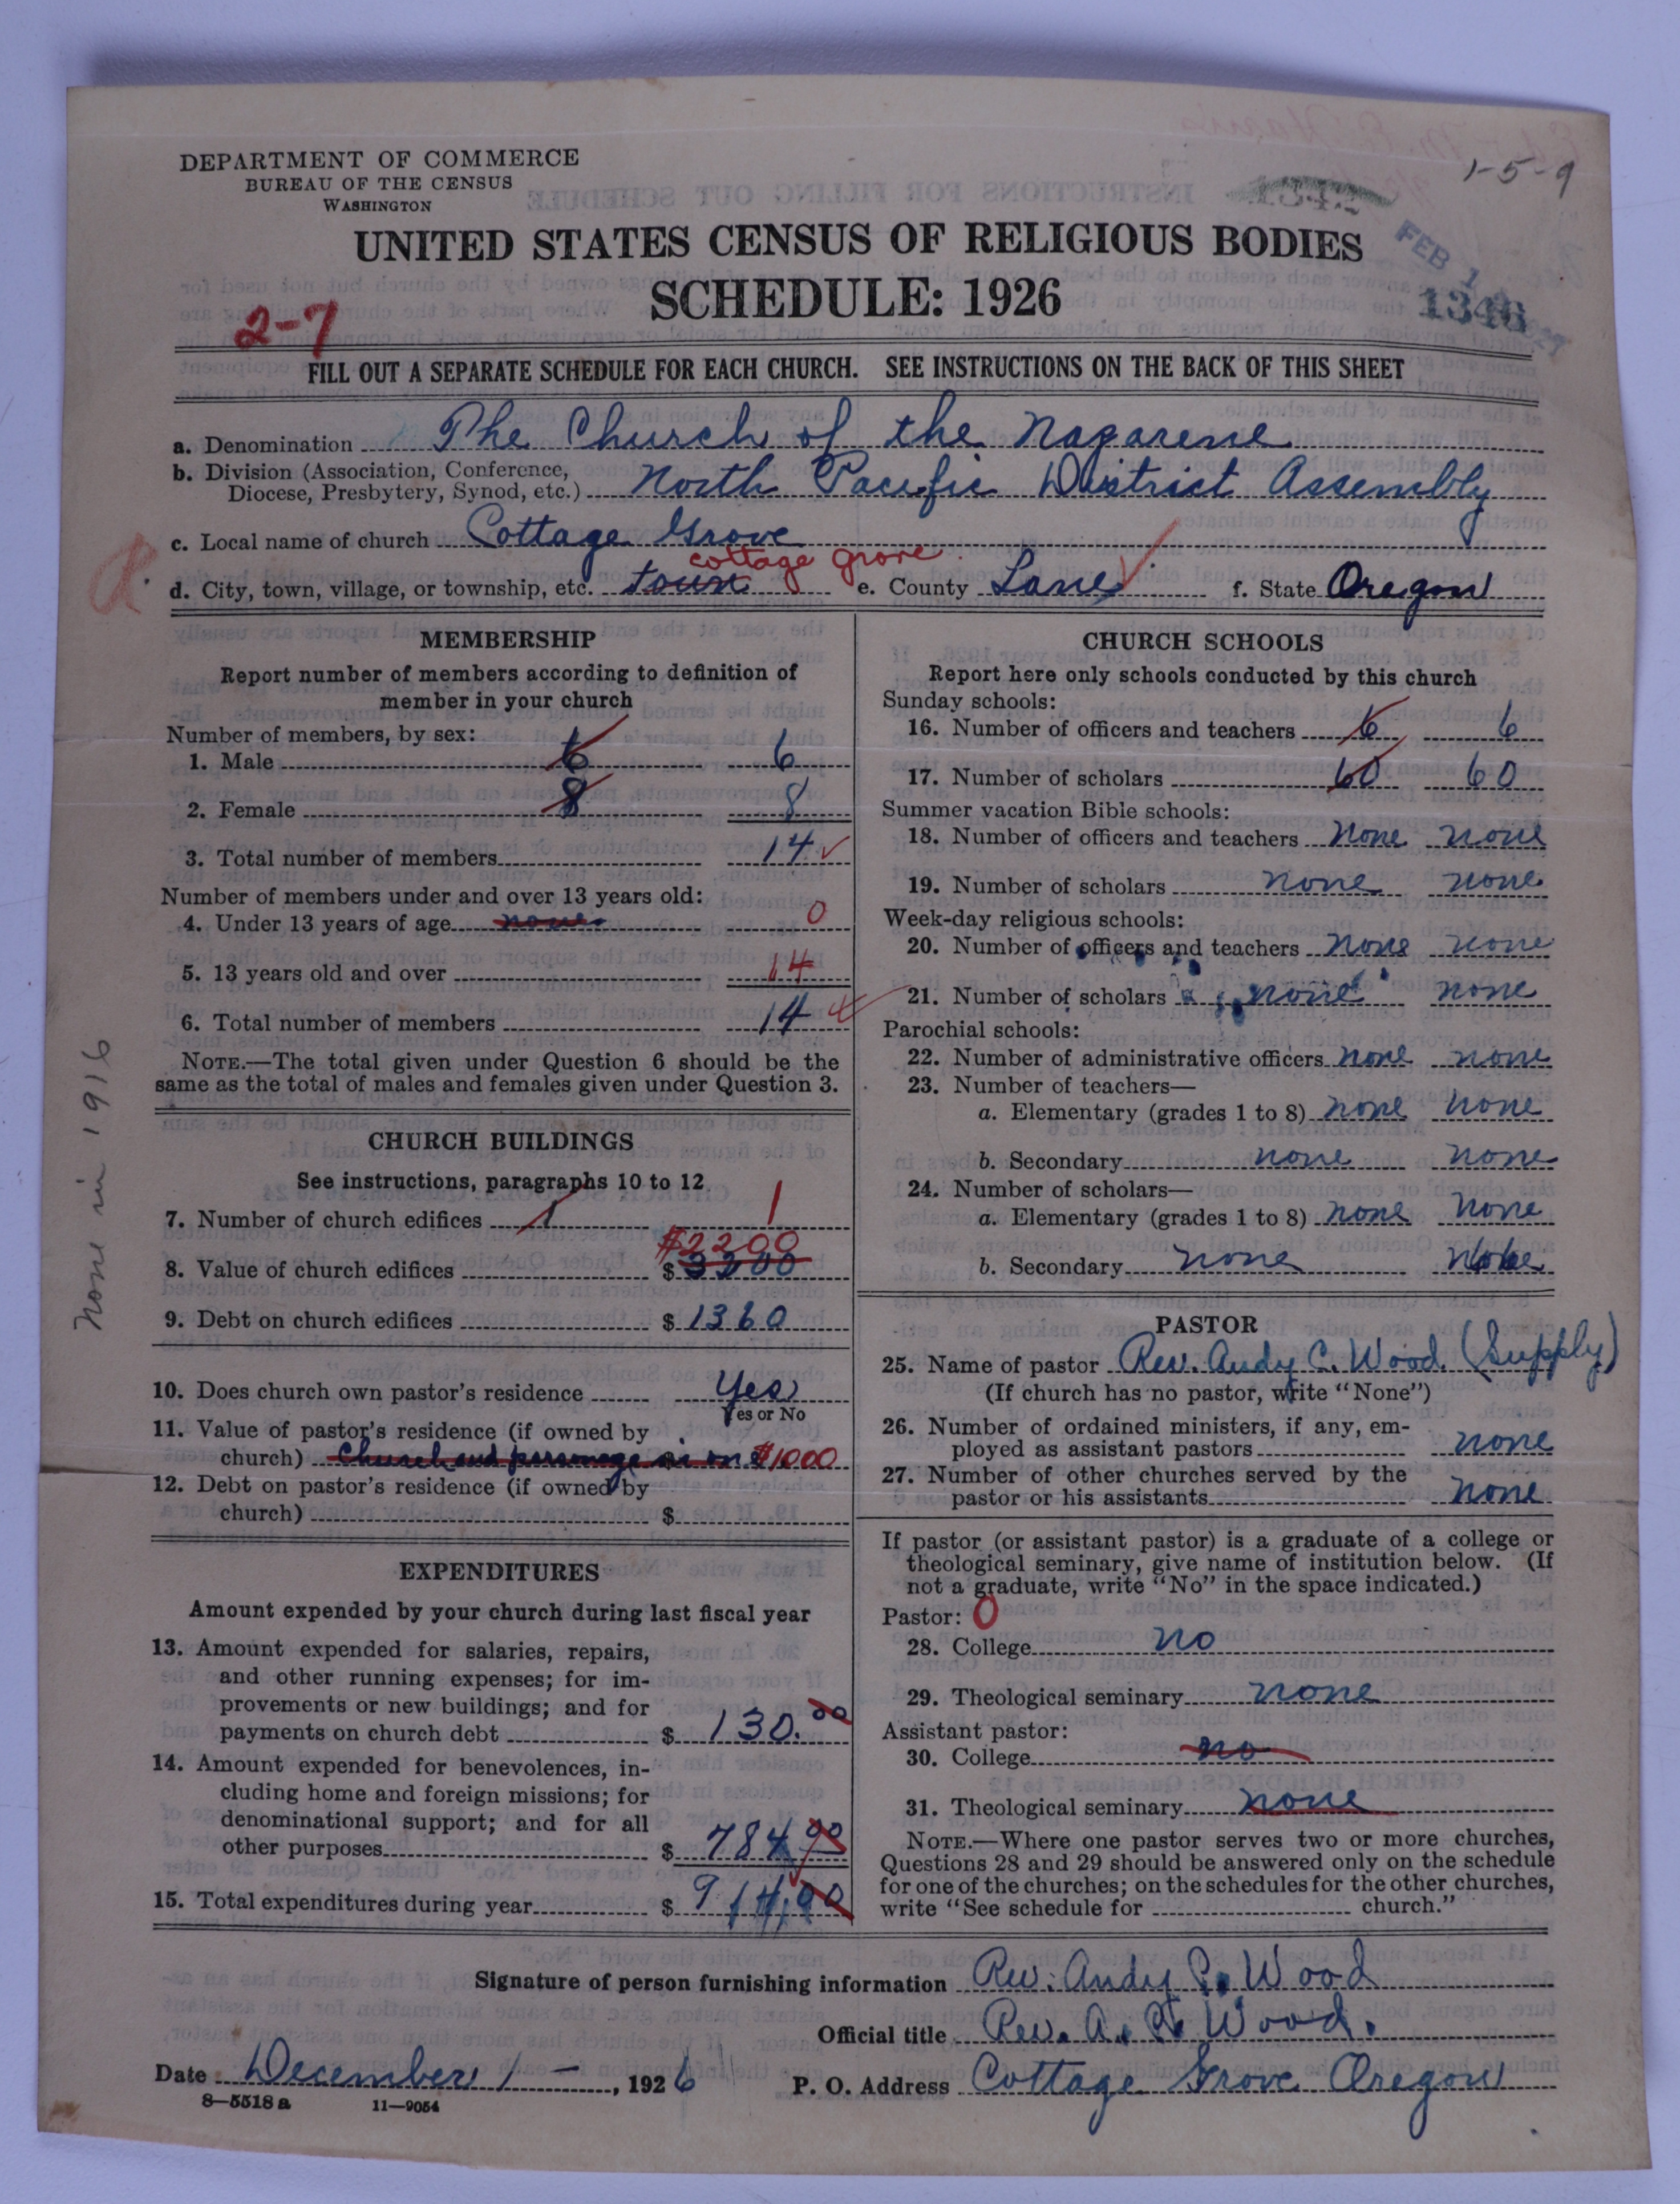 DEPARTMENT OF COMMERCE
BUREAU OF THE CENSUS
WASHINGTON
1-5-9
1342
UNITED STATES CENSUS OF RELIGIOUS BODIES
FEB 1
SCHEDULE: 1926
1346
2-7
FILL OUT A SEPARATE SCHEDULE FOR EACH CHURCH. SEE INSTRUCTIONS ON THE BACK OF THIS SHEET
a. Denomination The Church of the Nazarene
b. Division (Association, Conference,
Diocese, Presbytery, Synod, etc.) North Pacific District Assembly
c. Local name of church Cottage Grove
cottage grove
d. City, town, village, or township, etc. town e. County Lane f. State Oregon
MEMBERSHIP
Report number of members according to definition of
member in your church
Number of members, by sex:
1. Male 6 6
2. Female 8 8
3. Total number of members 14
Number of members under and over 13 years old:
4. Under 13 years of age none 0
5. 13 years old and over 14
6. Total number of members 14
NOTE.—The total given under Question 6 should be the
same as the total of males and females given under Question 3.
None in 1916
CHURCH BUILDINGS
See instructions, paragraphs 10 to 12
7. Number of church edifices 1 1
$2200
8. Value of church edifices $ 3200
9. Debt on church edifices $ 1360
10. Does church own pastor's residence Yes
Yes or No
11. Value of pastor's residence (if owned by
church) Church and parsonage is on $1000
12. Debt on pastor's residence (if owned by
church) $
EXPENDITURES
Amount expended by your church during last fiscal year
13. Amount expended for salaries, repairs,
and other running expenses; for im-
provements or new buildings; and for
payments on church debt $ 130.00
14. Amount expended for benevolences, in-
cluding home and foreign missions; for
denominational support; and for all
other purposes $ 784 00
15. Total expenditures during year $ 914.00
CHURCH SCHOOLS
Report here only schools conducted by this church
Sunday schools:
16. Number of officers and teachers 6 6
17. Number of scholars 60 60
Summer vacation Bible schools:
18. Number of officers and teachers None none
19. Number of scholars none none
Week-day religious schools:
20. Number of officers and teachers none none
21. Number of scholars none none
Parochial schools:
22. Number of administrative officers none none
23. Number of teachers—
a. Elementary (grades 1 to 8) none none
b. Secondary none none
24. Number of scholars—
a. Elementary (grades 1 to 8) none none
b. Secondary none None
PASTOR
25. Name of pastor Rev. Andy C. Wood. (Supply)
(If church has no pastor, write "None")
26. Number of ordained ministers, if any, em-
ployed as assistant pastors none
27. Number of other churches served by the
pastor or his assistants none
If pastor (or assistant pastor) is a graduate of a college or
theological seminary, give name of institution below. (If
not a graduate, write "No" in the space indicated.)
Pastor: 0
28. College no
29. Theological seminary none
Assistant pastor:
30. College no
31. Theological seminary none
NOTE.—Where one pastor serves two or more churches,
Questions 28 and 29 should be answered only on the schedule
for one of the churches; on the schedules for the other churches,
write "See schedule for church."
Signature of person furnishing information Rev. Andy C. Wood
Official title Rev. A. C. Wood.
Date December 1 – , 1926 P. O. Address Cottage Grove Oregon
8—5518 a 11—9054